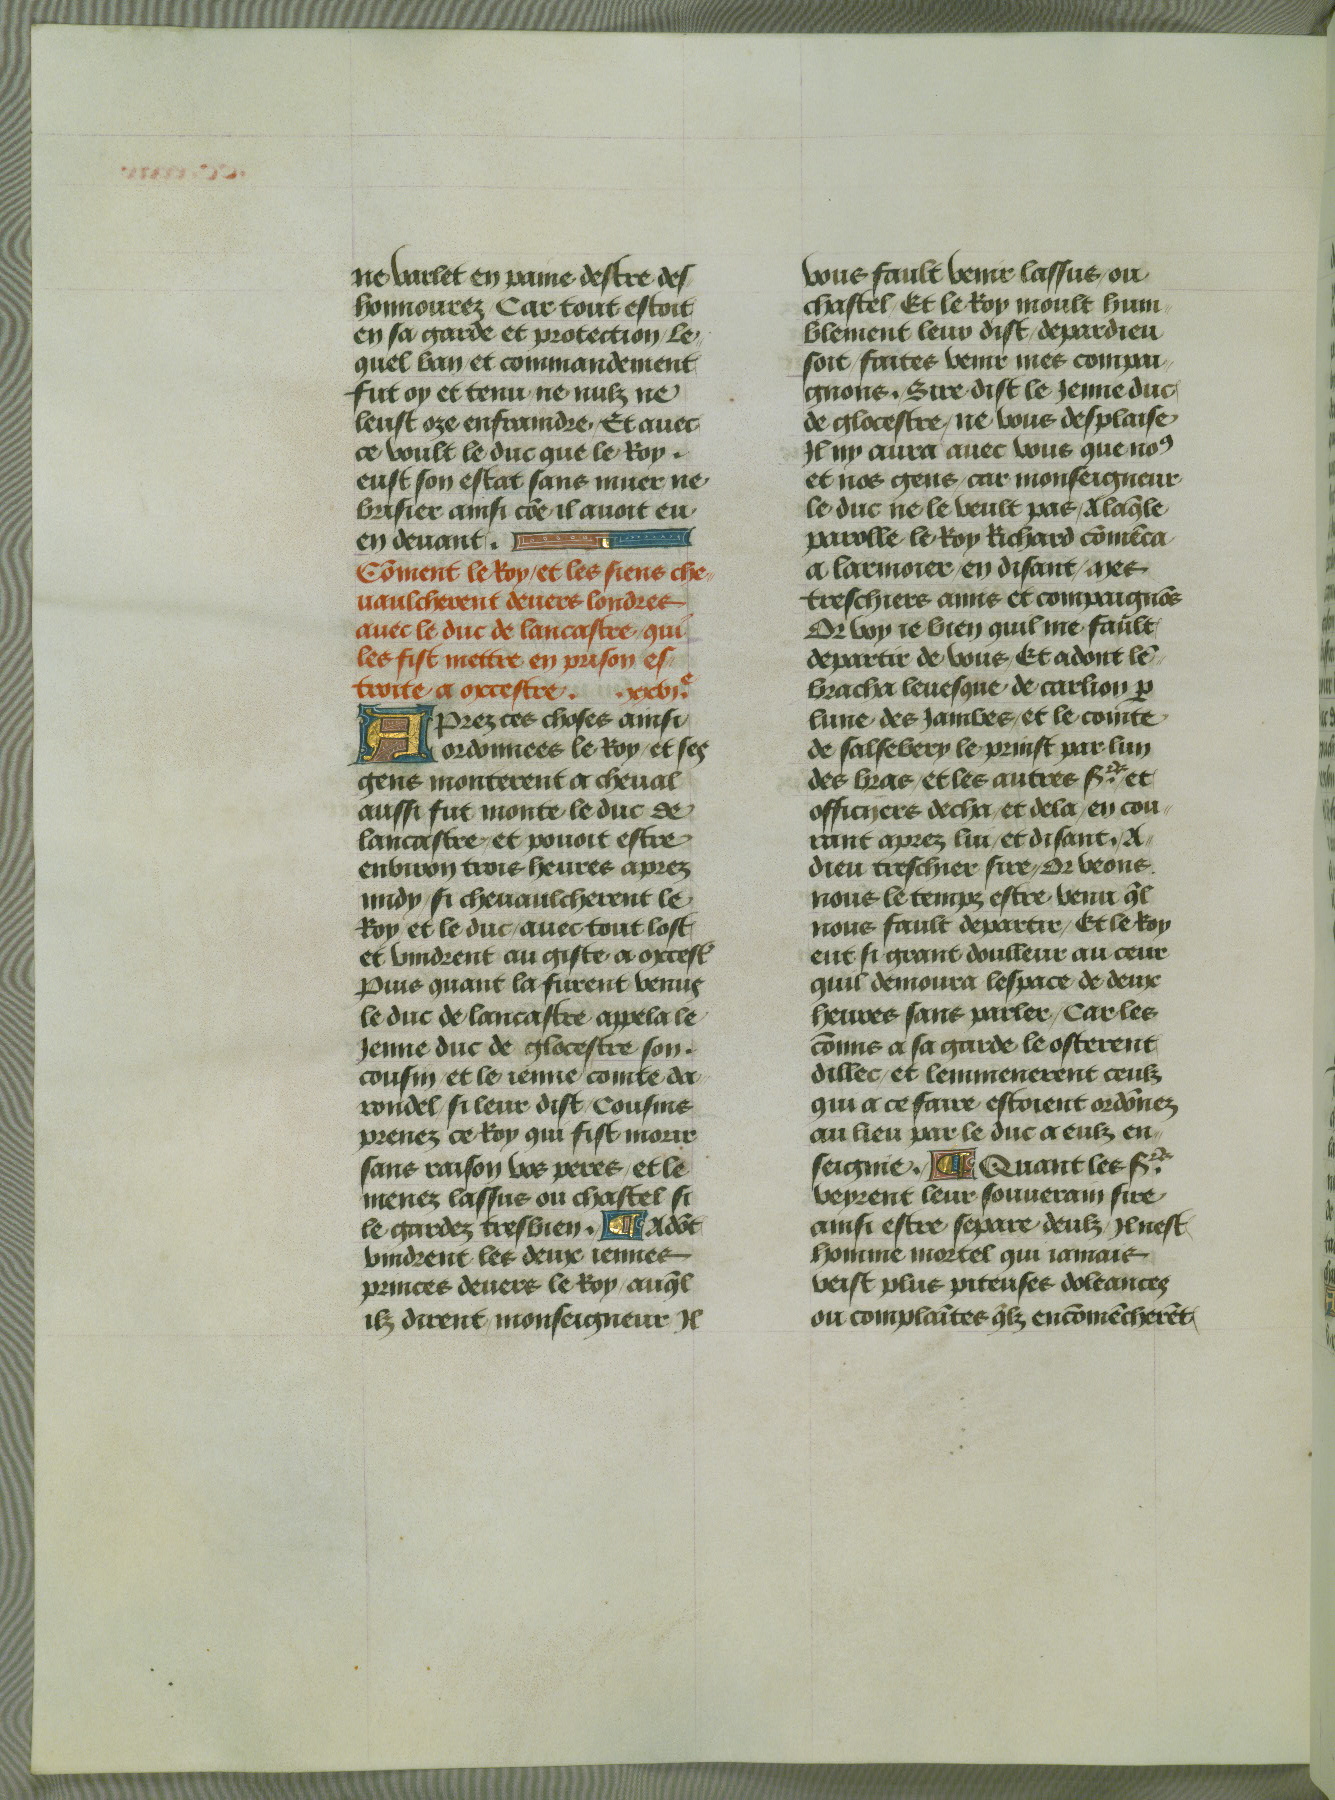 ne varlet en paine destre des
honnourez Car tout estoit
en sa garde et protection / Le
quel ban et commandement
fut oy et tenu ne nulz ne
leust oze enfraindre / Et auec
ce voult le duc que le Roy .
eust son estat sans muer ne
brisier ainsi cōe il auoit eu
en deuant .
Cōment le Roy / et les siens che„
uaulcherent deuers londres
auec le duc de lancastre / qui
les fist mettre en prison es„
troite a oxcestre . .xxvj.e
APrez ces choses ainsi
ordonnees le Roy / et ses
gens monterent a cheual
aussi fut monte le duc de
lancastre / et pouoit estre
enuiron trois heures aprez
midy / si cheuaulcherent le
Roy et le duc / auec tout lost
et vindrent au giste a oxcest'
Puis quant la furent venus
le duc de lancastre appela le
Jenne duc de glocestre son .
cousin / et le ienne comte da
rondel / si leur dist / Cousins
prenez ce Roy qui fist morir
sans raison vos peres / et le
menez lassus ou chastel si
le gardez tresbien . Adōt
vindrent les deux iennes
princes deuers le Roy / auq̄l
ilz dirent / monseigneur Jl
vous fault venir lassus / ou
chastel / Et le Roy moult hum„
blement leur dist / depardieu
soit / faites venir mes compai„
gnons . Sire dist le Jenne duc
de glocestre / ne vous desplaise
Jl ny aura auec vous que noꝰ
et nos gens / car monseigneur
le duc ne le veult pas / A laq̄le
parolle le Roy Richard cōmēca
a larmoier / en disant / mes
treschiers amis et compaignōs
Or voy ie bien quil me fault
departir de vous / Et adont le
bracha leuesque de carlion ꝑ
lune des Jambes / et le comte
de salsebery le prinst par lun
des bras / et les autres Srs / et
officyers decha / et dela / en cou„
rant aprez lui / et disant . A„
dieu treschier sire / Or veons
nous le tempz estre venu q̄l
nous fault departir / Et le Roy
eut si grant doulleur au ceur
quil demoura lespace de deux
heures sans parler / Car les
cōmis a sa garde le osterent
dillec / et lemmenerent ceulz
qui a ce faire estoient ordōnez
au lieu par le duc a eulz en„
seignie . Quant les Srs
veyrent leur souuerain sire
ainsi estre separe deulz / Jl nest
homme mortel qui iamais
veist plus piteuses doleances
ou complaītes q̄lz encōmēcherēt